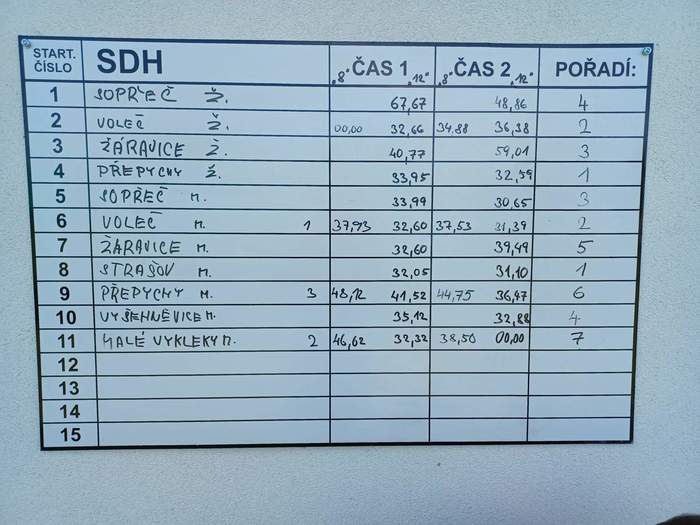 START. ČÍSLO SDH „8“ ČAS 1 „12“ „8“ ČAS 2 „12“ POŘADÍ:
1 SOPŘEČ Ž. 67,67 48,86 4
2 VOLEČ Ž. 00,00 32,66 34,88 36,38 2
3 ŽÁRAVICE Ž. 40,77 59,01 3
4 PŘEPYCHY Ž. 33,95 32,59 1
5 SOPŘEČ M. 33,99 30,65 3
6 VOLEČ M. 1 37,93 32,60 37,53 31,39 2
7 ŽARAVICE M. 32,60 39,49 5
8 STRAŠOV M. 32,05 31,10 1
9 PŘEPYCHY M. 3 48,12 41,52 44,75 36,97 6
10 VYŠEHNĚVICE M. 35,12 32,88 4
11 MALÉ VÝKLEKY M. 2 46,62 32,32 38,50 00,00 7
12
13
14
15